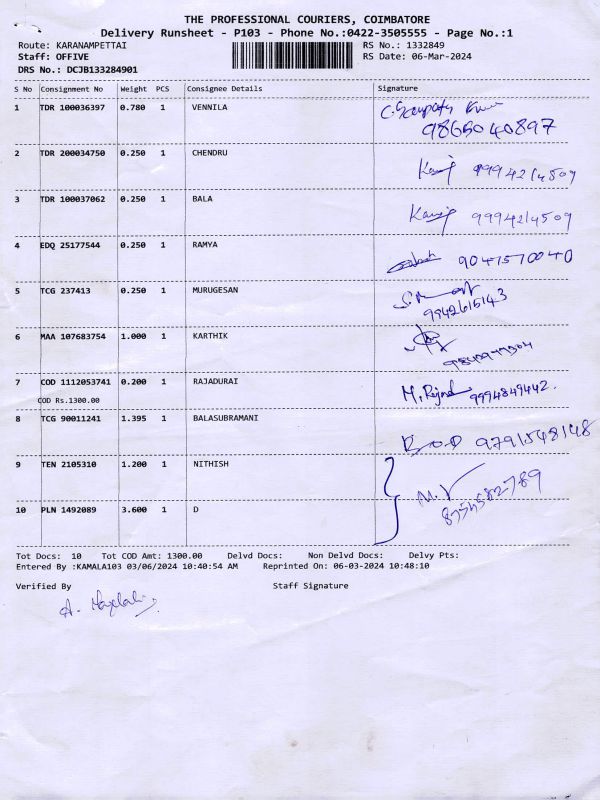 THE PROFESSIONAL COURIERS, COIMBATORE
Delivery Runsheet - P103 - Phone No.:0422-3505555 - Page No.:1
Route: KARANAMPETTAI RS No.: 1332849
Staff: OFFIVE RS Date: 06-Mar-2024
DRS No.: DCJB133284901
S No Consignment No Weight PCS Consignee Details Signature
1 TDR 100036397 0.780 1 VENNILA
9865040897
2 TDR 200034750 0.250 1 CHENDRU 9994214509
3 TDR 100037062 0.250 1 BALA 9994214509
4 EDQ 25177544 0.250 1 RAMYA 9041570040
5 TCG 237413 0.250 1 MURUGESAN
9942615143
6 MAA 107683754 1.000 1 KARTHIK
7 COD 1112053741 0.200 1 RAJADURAI M. 9994849442.
COD Rs.1300.00
8 TCG 90011241 1.395 1 BALASUBRAMANI
9791548148
9 TEN 2105310 1.200 1 NITHISH
M.V
10 PLN 1492089 3.600 1 D
Tot Docs: 10 Tot COD Amt: 1300.00 Delvd Docs: Non Delvd Docs: Delvy Pts:
Entered By :KAMALA103 03/06/2024 10:40:54 AM Reprinted On: 06-03-2024 10:48:10
Verified By Staff Signature